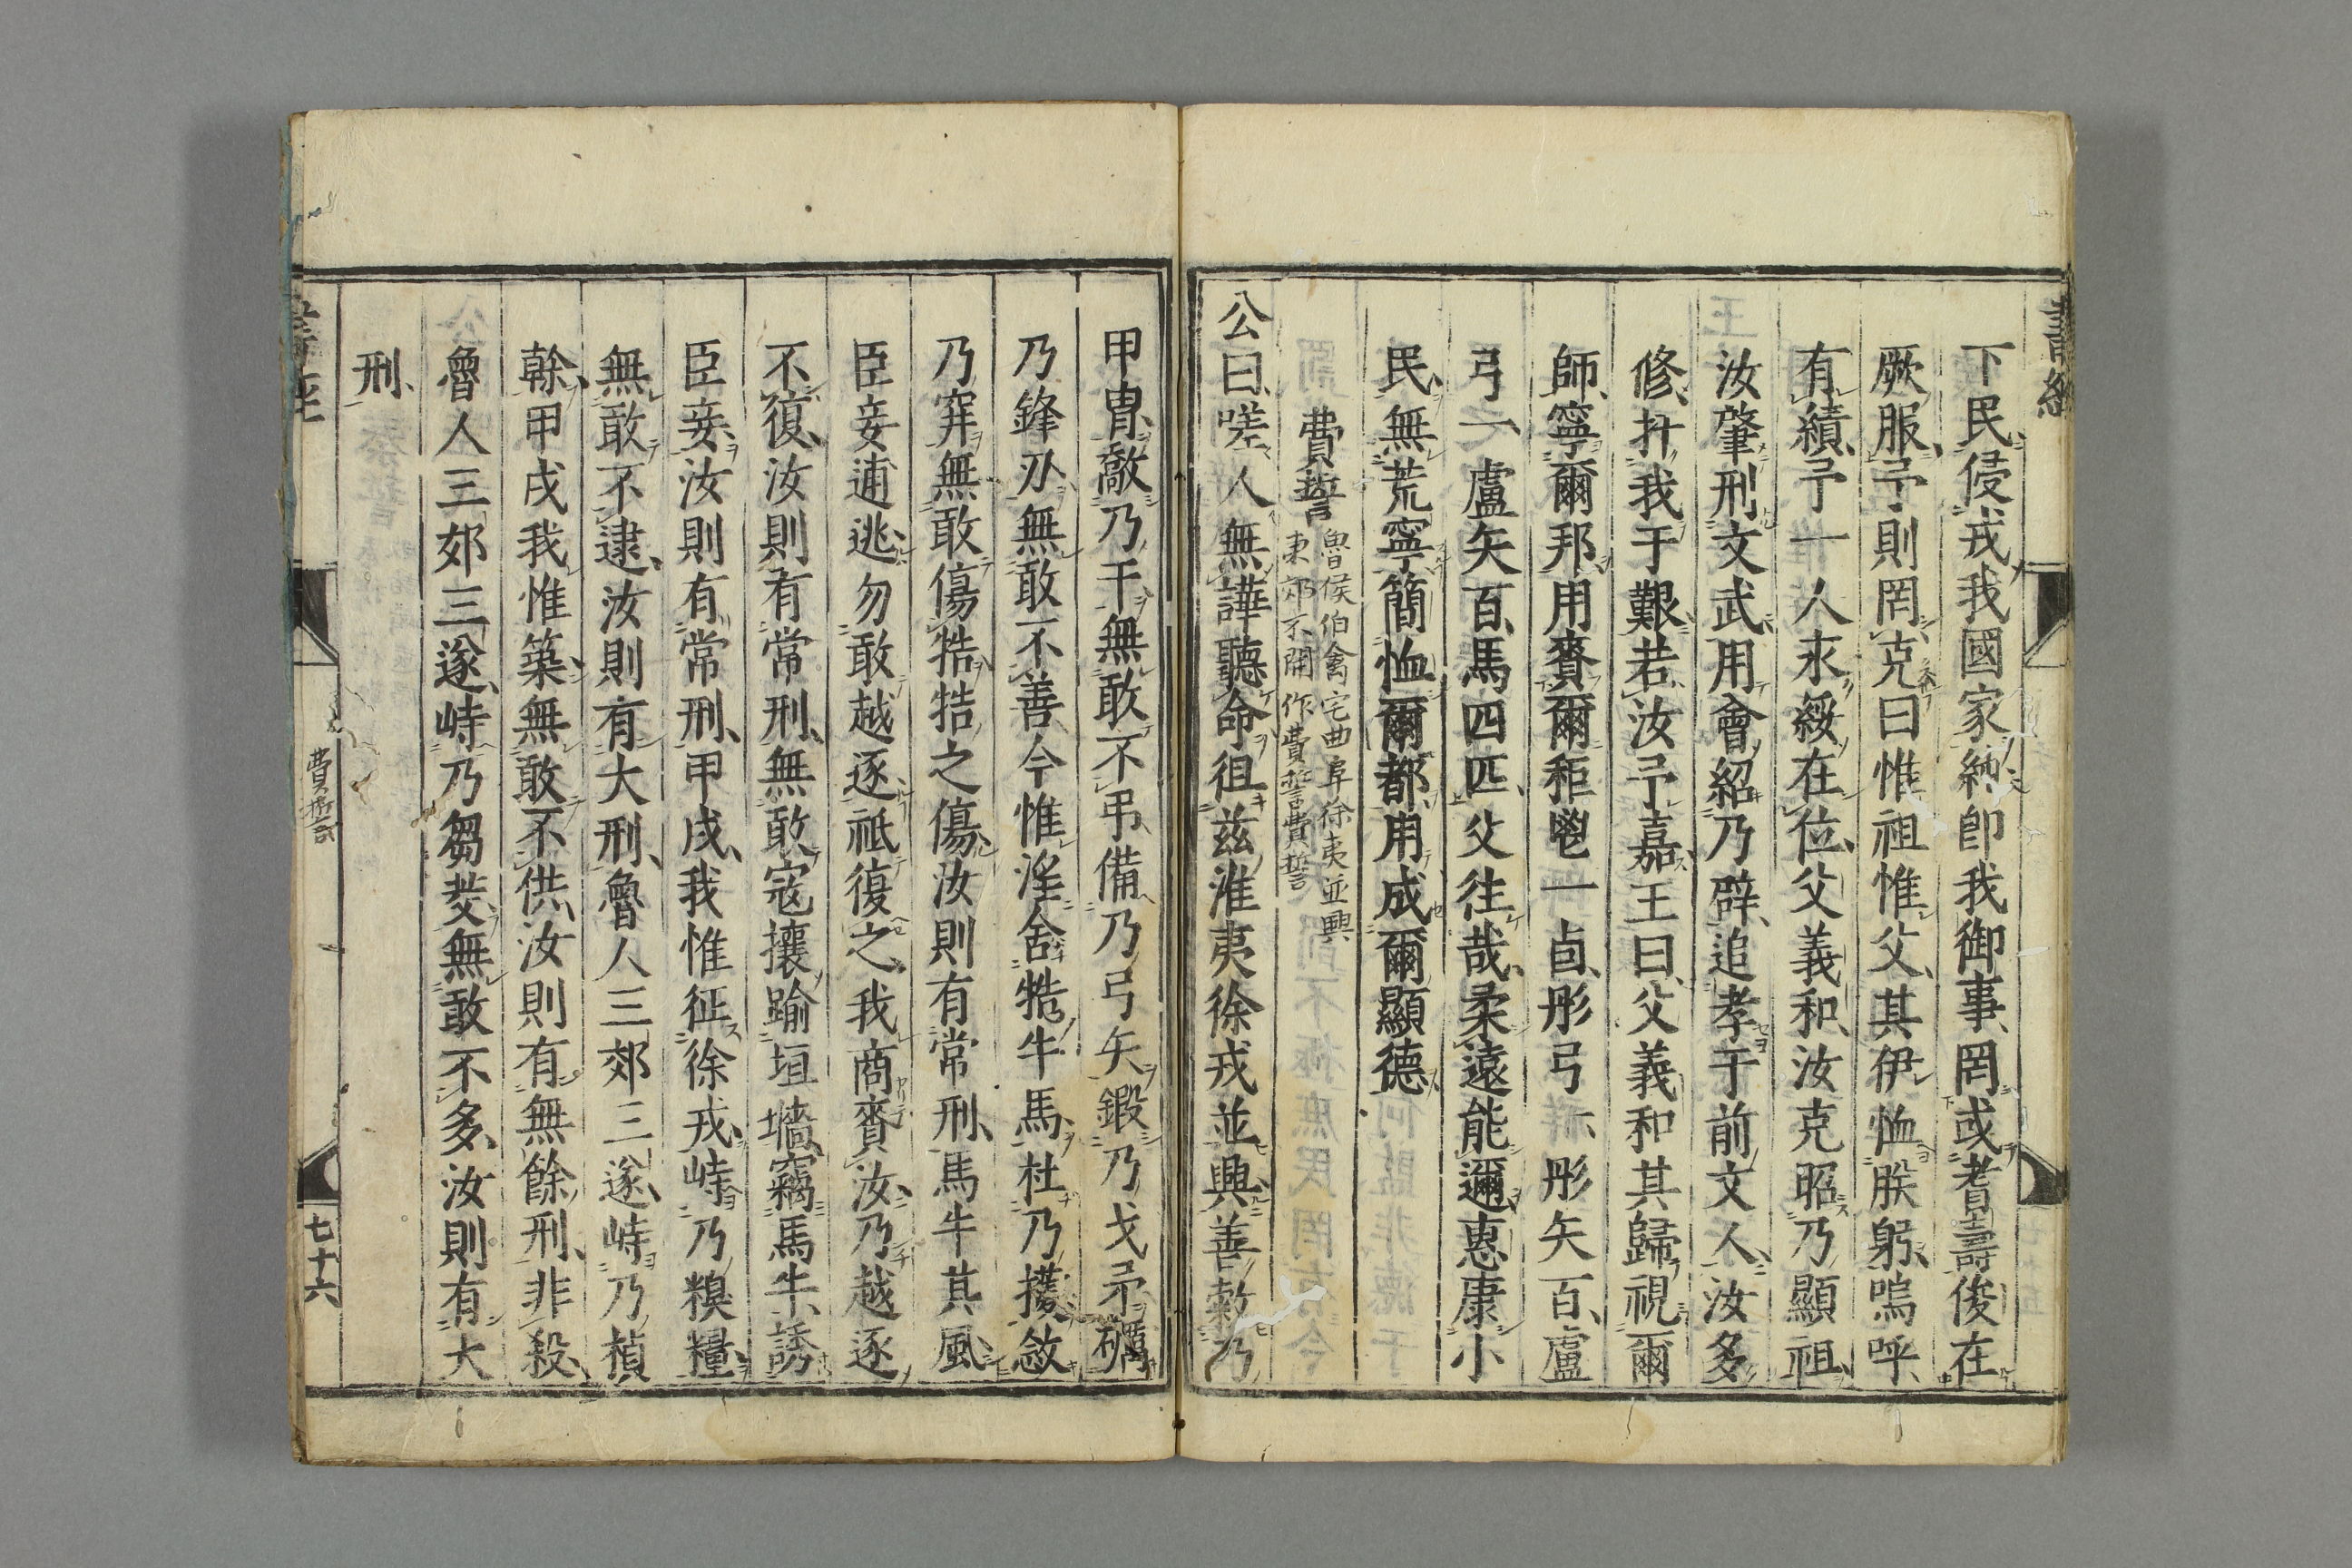 書經
下民侵戎我國家純卽我御事罔或耆壽俊在
厥服予則罔克曰惟祖惟父其伊恤朕躬嗚呼
有績予一人永綏在位父義和汝克昭乃顯祖
汝肇刑文武用會紹乃辟追孝于前文人汝多
修扞我于艱若汝予嘉王曰父義和其歸視爾
師寧爾邦用賚爾秬鬯一卣彤弓一彤矢百盧
弓一盧矢百馬四匹父往哉柔遠能邇惠康小
民無荒寧簡恤爾都用成爾顯德
費誓
魯侯伯禽宅曲阜徐夷並興
東郊不開作費誓費誓
公曰嗟人無譁聽命徂茲淮夷徐戎並興善敹乃
甲冑敿乃干無敢不弔備乃弓矢鍛乃戈矛礪
乃鋒刃無敢不善今惟淫舍牿牛馬杜乃擭敜
乃穽無敢傷牿牿之傷汝則有常刑馬牛其風
臣妾逋逃勿敢越逐祗復之我商賚汝乃越逐
不復汝則有常刑無敢寇攘踰垣墻竊馬牛誘
臣妾汝則有常刑甲戌我惟征徐戎峙乃糗糧
無敢不逮汝則有大刑魯人三郊三遂峙乃楨
榦甲戌我惟築無敢不供汝則有無餘刑非殺
魯人三郊三遂峙乃芻茭無敢不多汝則有大
刑
費誓
七十六